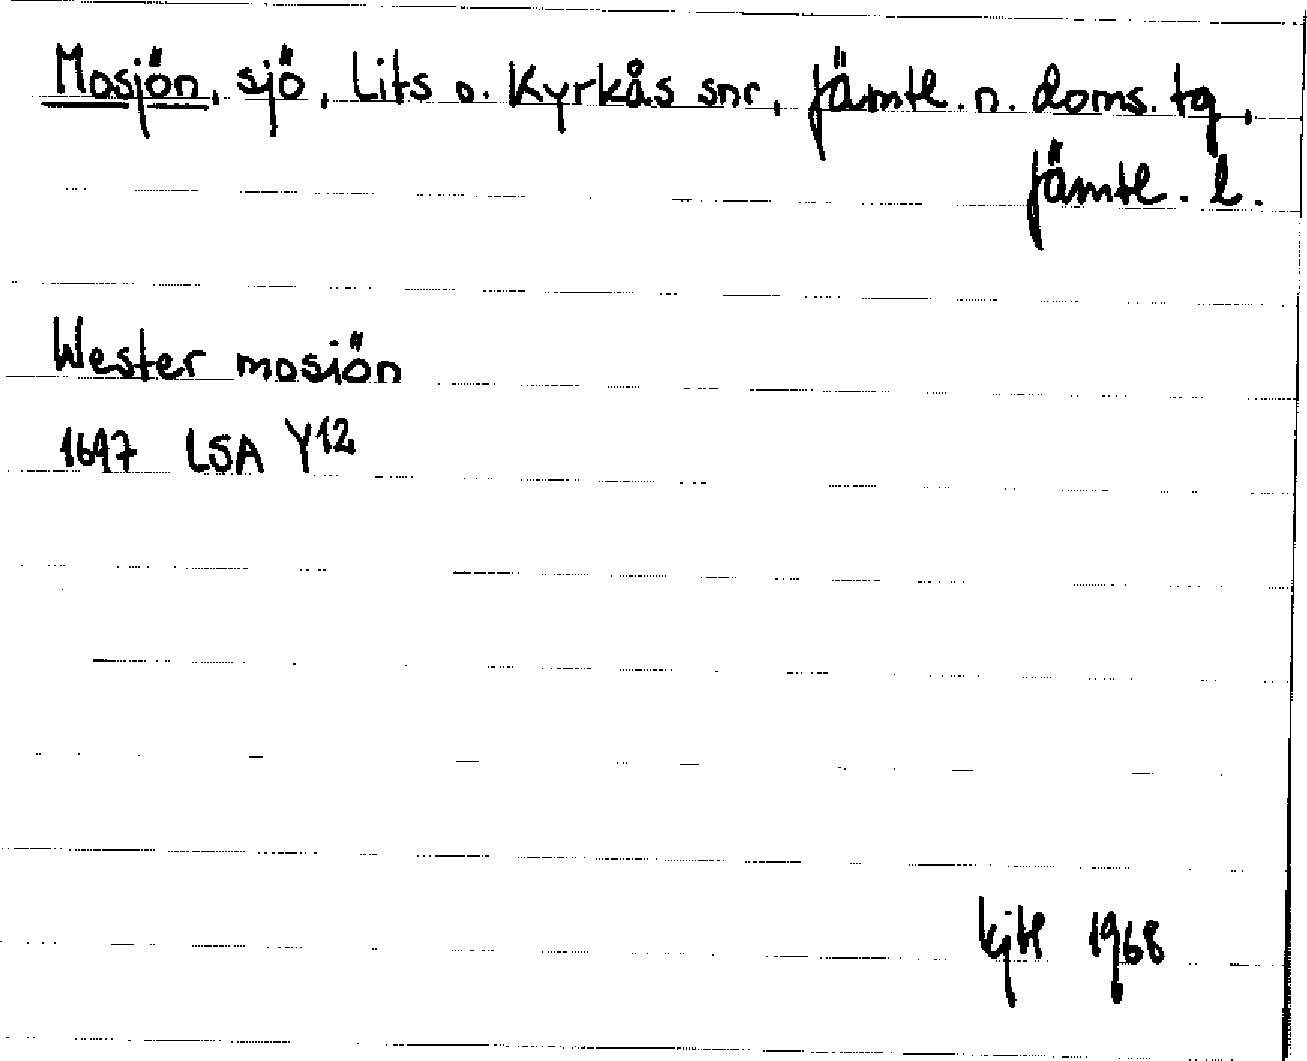 Mosjön, sjö, Lits o. Kyrkås snr, Jämtl. n. doms. tg,
Jämtl. l.
Wester mosiön
1697 LSA Y12
1968